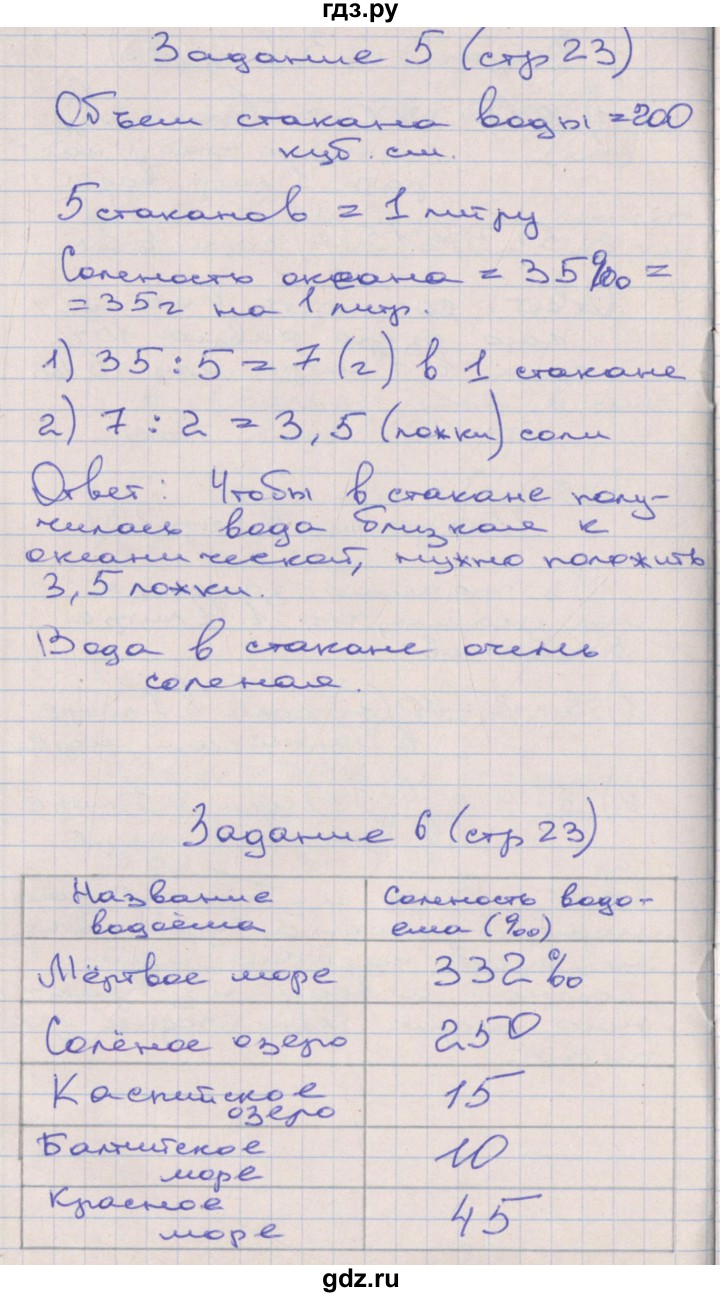 гдз.ру
Задание 5 (стр 23)
Объем стакана воды = 200
куб. см.
5 стаканов = 1 литру
Соленость океана = 35‰ =
= 35г на 1 литр.
1) 35 : 5 = 7 (г) в 1 стакане
2) 7 : 2 = 3,5 (ложки) соли
Ответ: Чтобы в стакане полу-
чилась вода близкая к
океанической, нужно положить
3,5 ложки.
Вода в стакане очень
соленая.
Задание 6 (стр 23)
Название
водоёма
Соленость водо-
ема (‰)
Мёртвое море
332‰
Солёное озеро
250
Каспийское
озеро
15
Балтийское
море
10
Красное
море
45
gdz.ru